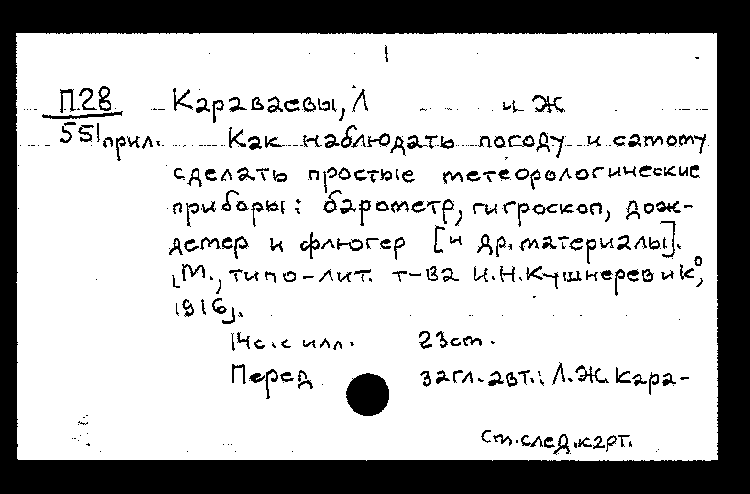 П28 Караваевы, Л и Ж
551 прил. Как наблюдать погоду и самому
сделать простые метеорологические
приборы: барометр, гигроскоп, дож-
демер и флюгер [и др. материалы].
[М., типо-лит. т-ва И.Н. Кушнерев и К°,
1916].
14с. с илл. 23см.
Перед загл. авт.: Л.Ж. Кара-
См. след. карт.